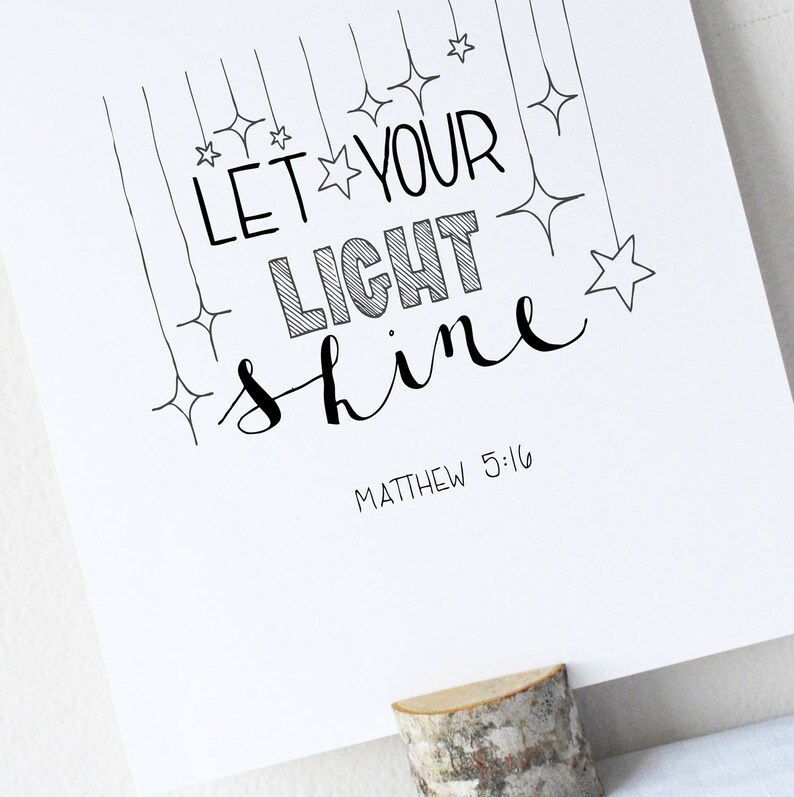 LET YOUR
LIGHT
shine
MATTHEW 5:16